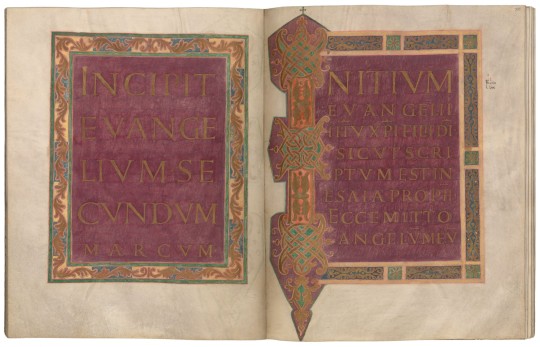 INCIPIT
EVANGE
LIUM SE
CUNDUM
MARCUM
INITIUM
EVANGELII
IHU XPI FILII DI
SICUT SCRI
PTUM EST IN
ESAIA PROPE
ECCE MITTO
ANGELUM EU